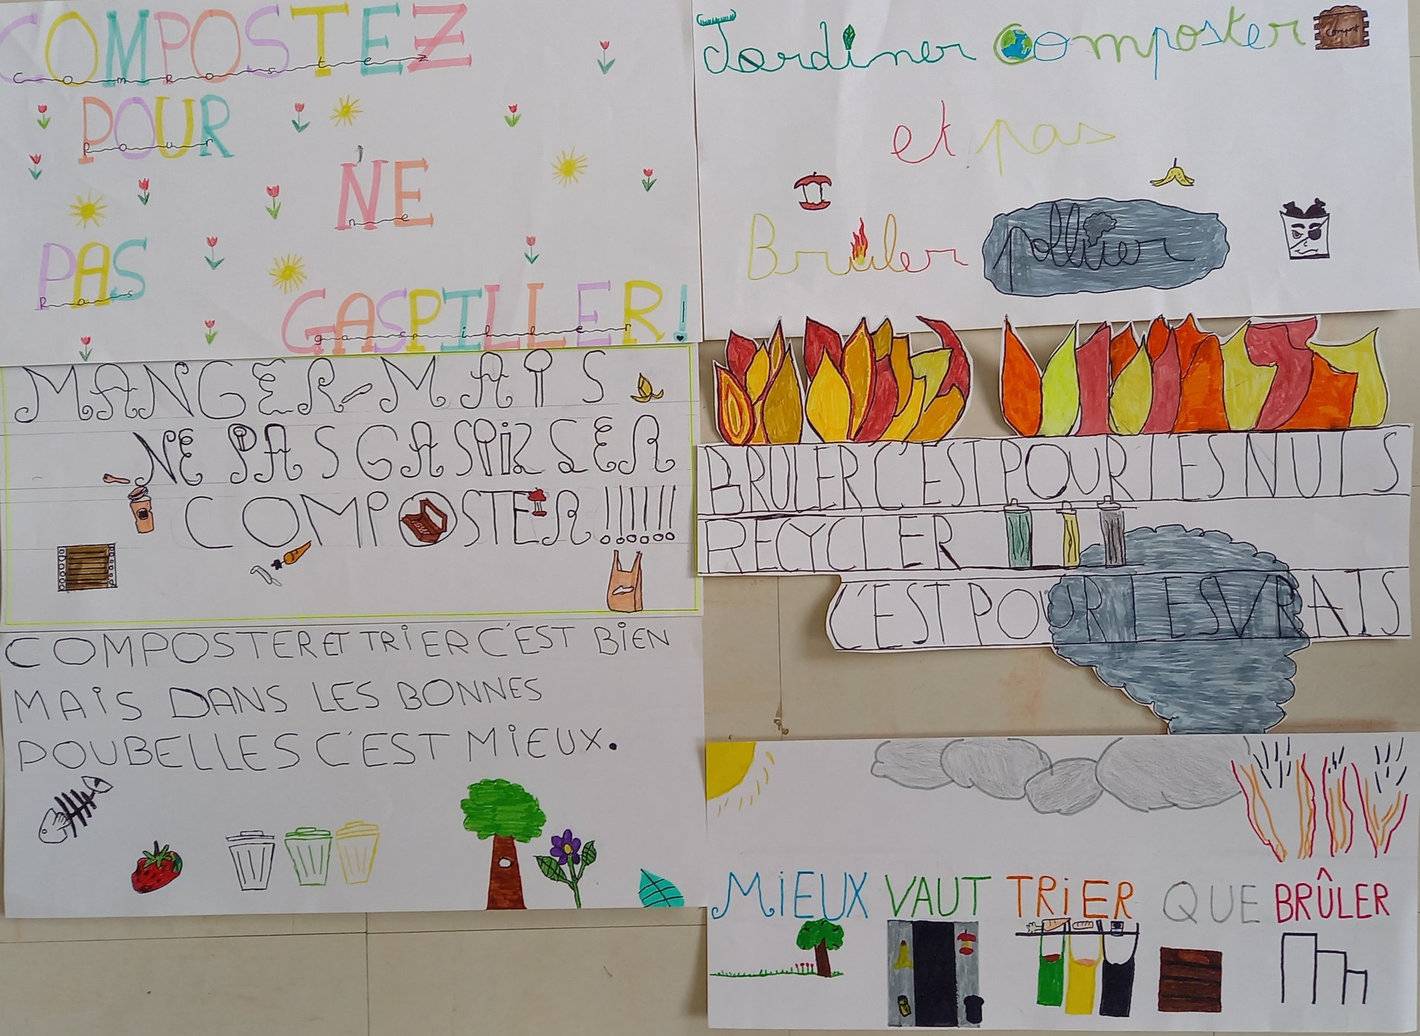 COMPOSTEZ
Compostez
POUR
pour
NE
ne
PAS
pas
GASPILLER!
gaspiller
MANGER-MAIS
NE PAS GASPILLER
COMPOSTER!!!!!!
COMPOSTER ET TRIER C'EST BIEN
MAIS DANS LES BONNES
POUBELLES C'EST MIEUX.
Jardiner composter
compost
et pas
Brûler polluer
BRULER C'EST POUR LES NULS
RECYCLER
C'EST POUR LES VRAIS
MIEUX VAUT TRIER QUE BRÛLER